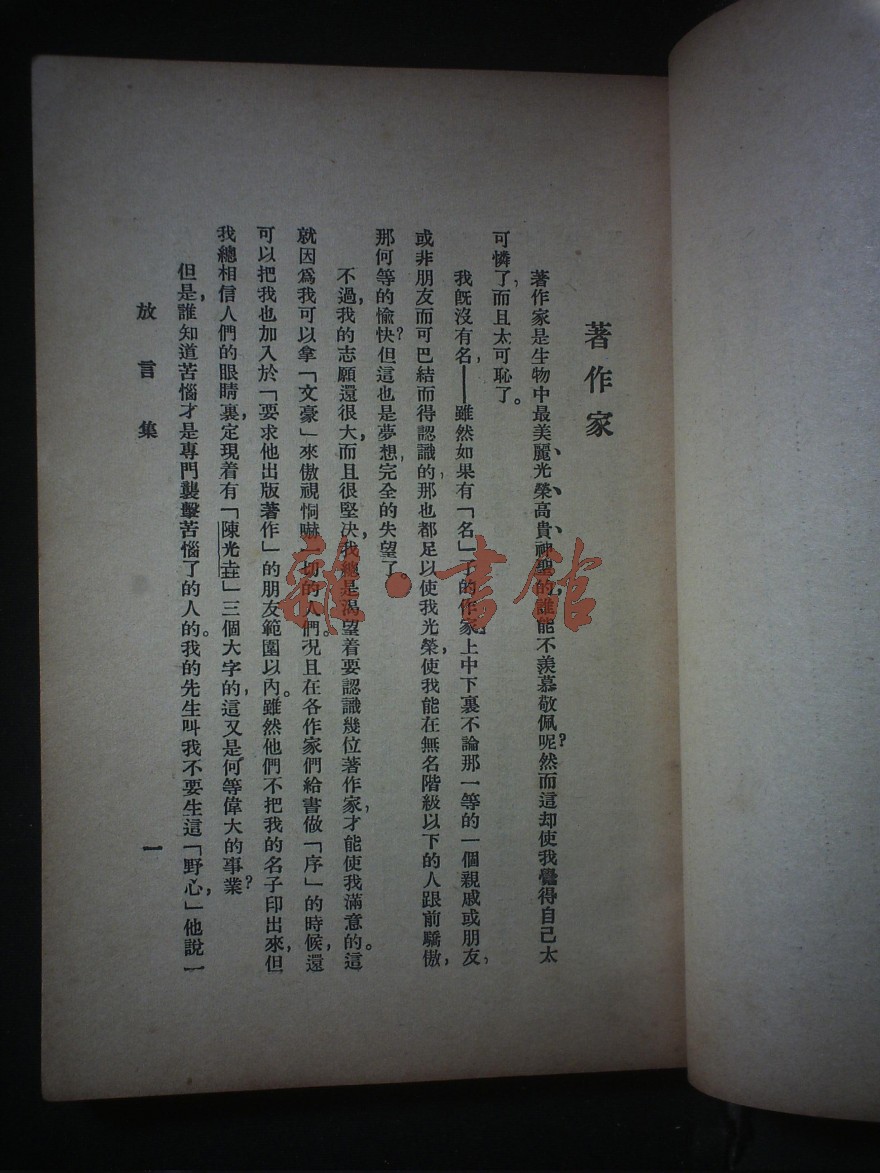 著作家
著作家是生物中最美麗、光榮、高貴、神聖的，誰能不羨慕敬佩呢？然而這却使我覺得自己太
可憐了，而且太可恥了。
我旣沒有名，——雖然如果有「名」了的作家，上中下裏不論那一等的一個親戚或朋友，
或非朋友而可巴結而得認識的，那也都足以使我光榮，使我能在無名階級以下的人跟前驕傲，
那何等的愉快？但這也是夢想，完全的失望了。
不過，我的志願還很大，而且很堅决，我總是渴望着要認識幾位著作家，才能使我滿意的。這
就因爲我可以拿「文豪」來傲視恫嚇一切的人們。况且在各作家們給書做「序」的時候，還
可以把我也加入於「要求他出版著作」的朋友範圍以內。雖然他們不把我的名子印出來，但
我總相信人們的眼睛裏，定現着有「陳光垚」三個大字的，這又是何等偉大的事業？
但是，誰知道苦惱才是專門襲擊苦惱了的人的。我的先生叫我不要生這「野心，」他說一
放言集
一
雜·書館